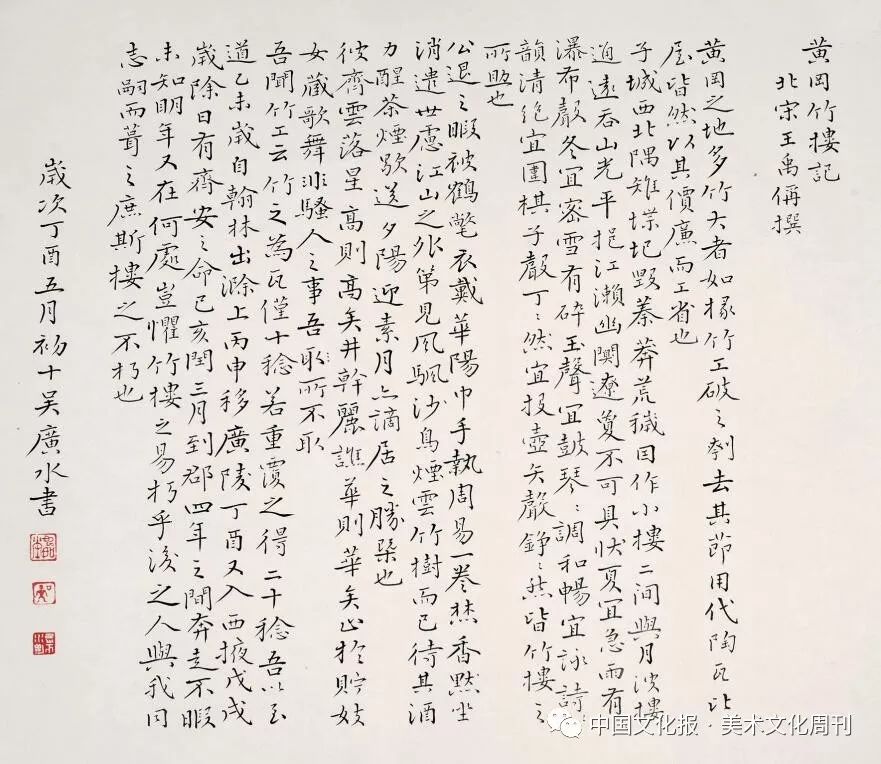 黄岡竹樓記
北宋王禹偁撰
黄岡之地多竹大者如椽竹工破之刳去其節用代陶瓦比〻
屋皆然以其價廉而工省也
子城西北隅雉堞圮毀蓁莽荒穢因作小樓二間與月波樓
通遠吞山光平挹江瀨幽闃遼夐不可具狀夏宜急雨有
瀑布聲冬宜密雪有碎玉聲宜鼓琴〻調和暢宜詠詩〻
韻清絕宜圍棋子聲丁〻然宜投壺矢聲錚〻然皆竹樓之
所助也
公退之暇被鶴氅衣戴華陽巾手執周易一卷焚香默坐
消遣世慮江山之外第見風颿沙鳥煙雲竹樹而已待其酒
力醒茶煙歇送夕陽迎素月亦謫居之勝槩也
彼齊雲落星高則高矣井幹麗譙華則華矣止於貯妓
女藏歌舞非騷人之事吾取所不取
吾聞竹工云竹之為瓦僅十稔若重覆之得二十稔吾以至
道乙未歲自翰林出滁上丙申移廣陵丁酉又入西掖戊戌
歲除日有齊安之命己亥閏三月到郡四年之間奔走不暇
未知明年又在何處豈懼竹樓之易朽乎後之人與我同
志嗣而葺之庶斯樓之不朽也
歲次丁酉五月初十吳廣水書
中国文化报·美术文化周刊